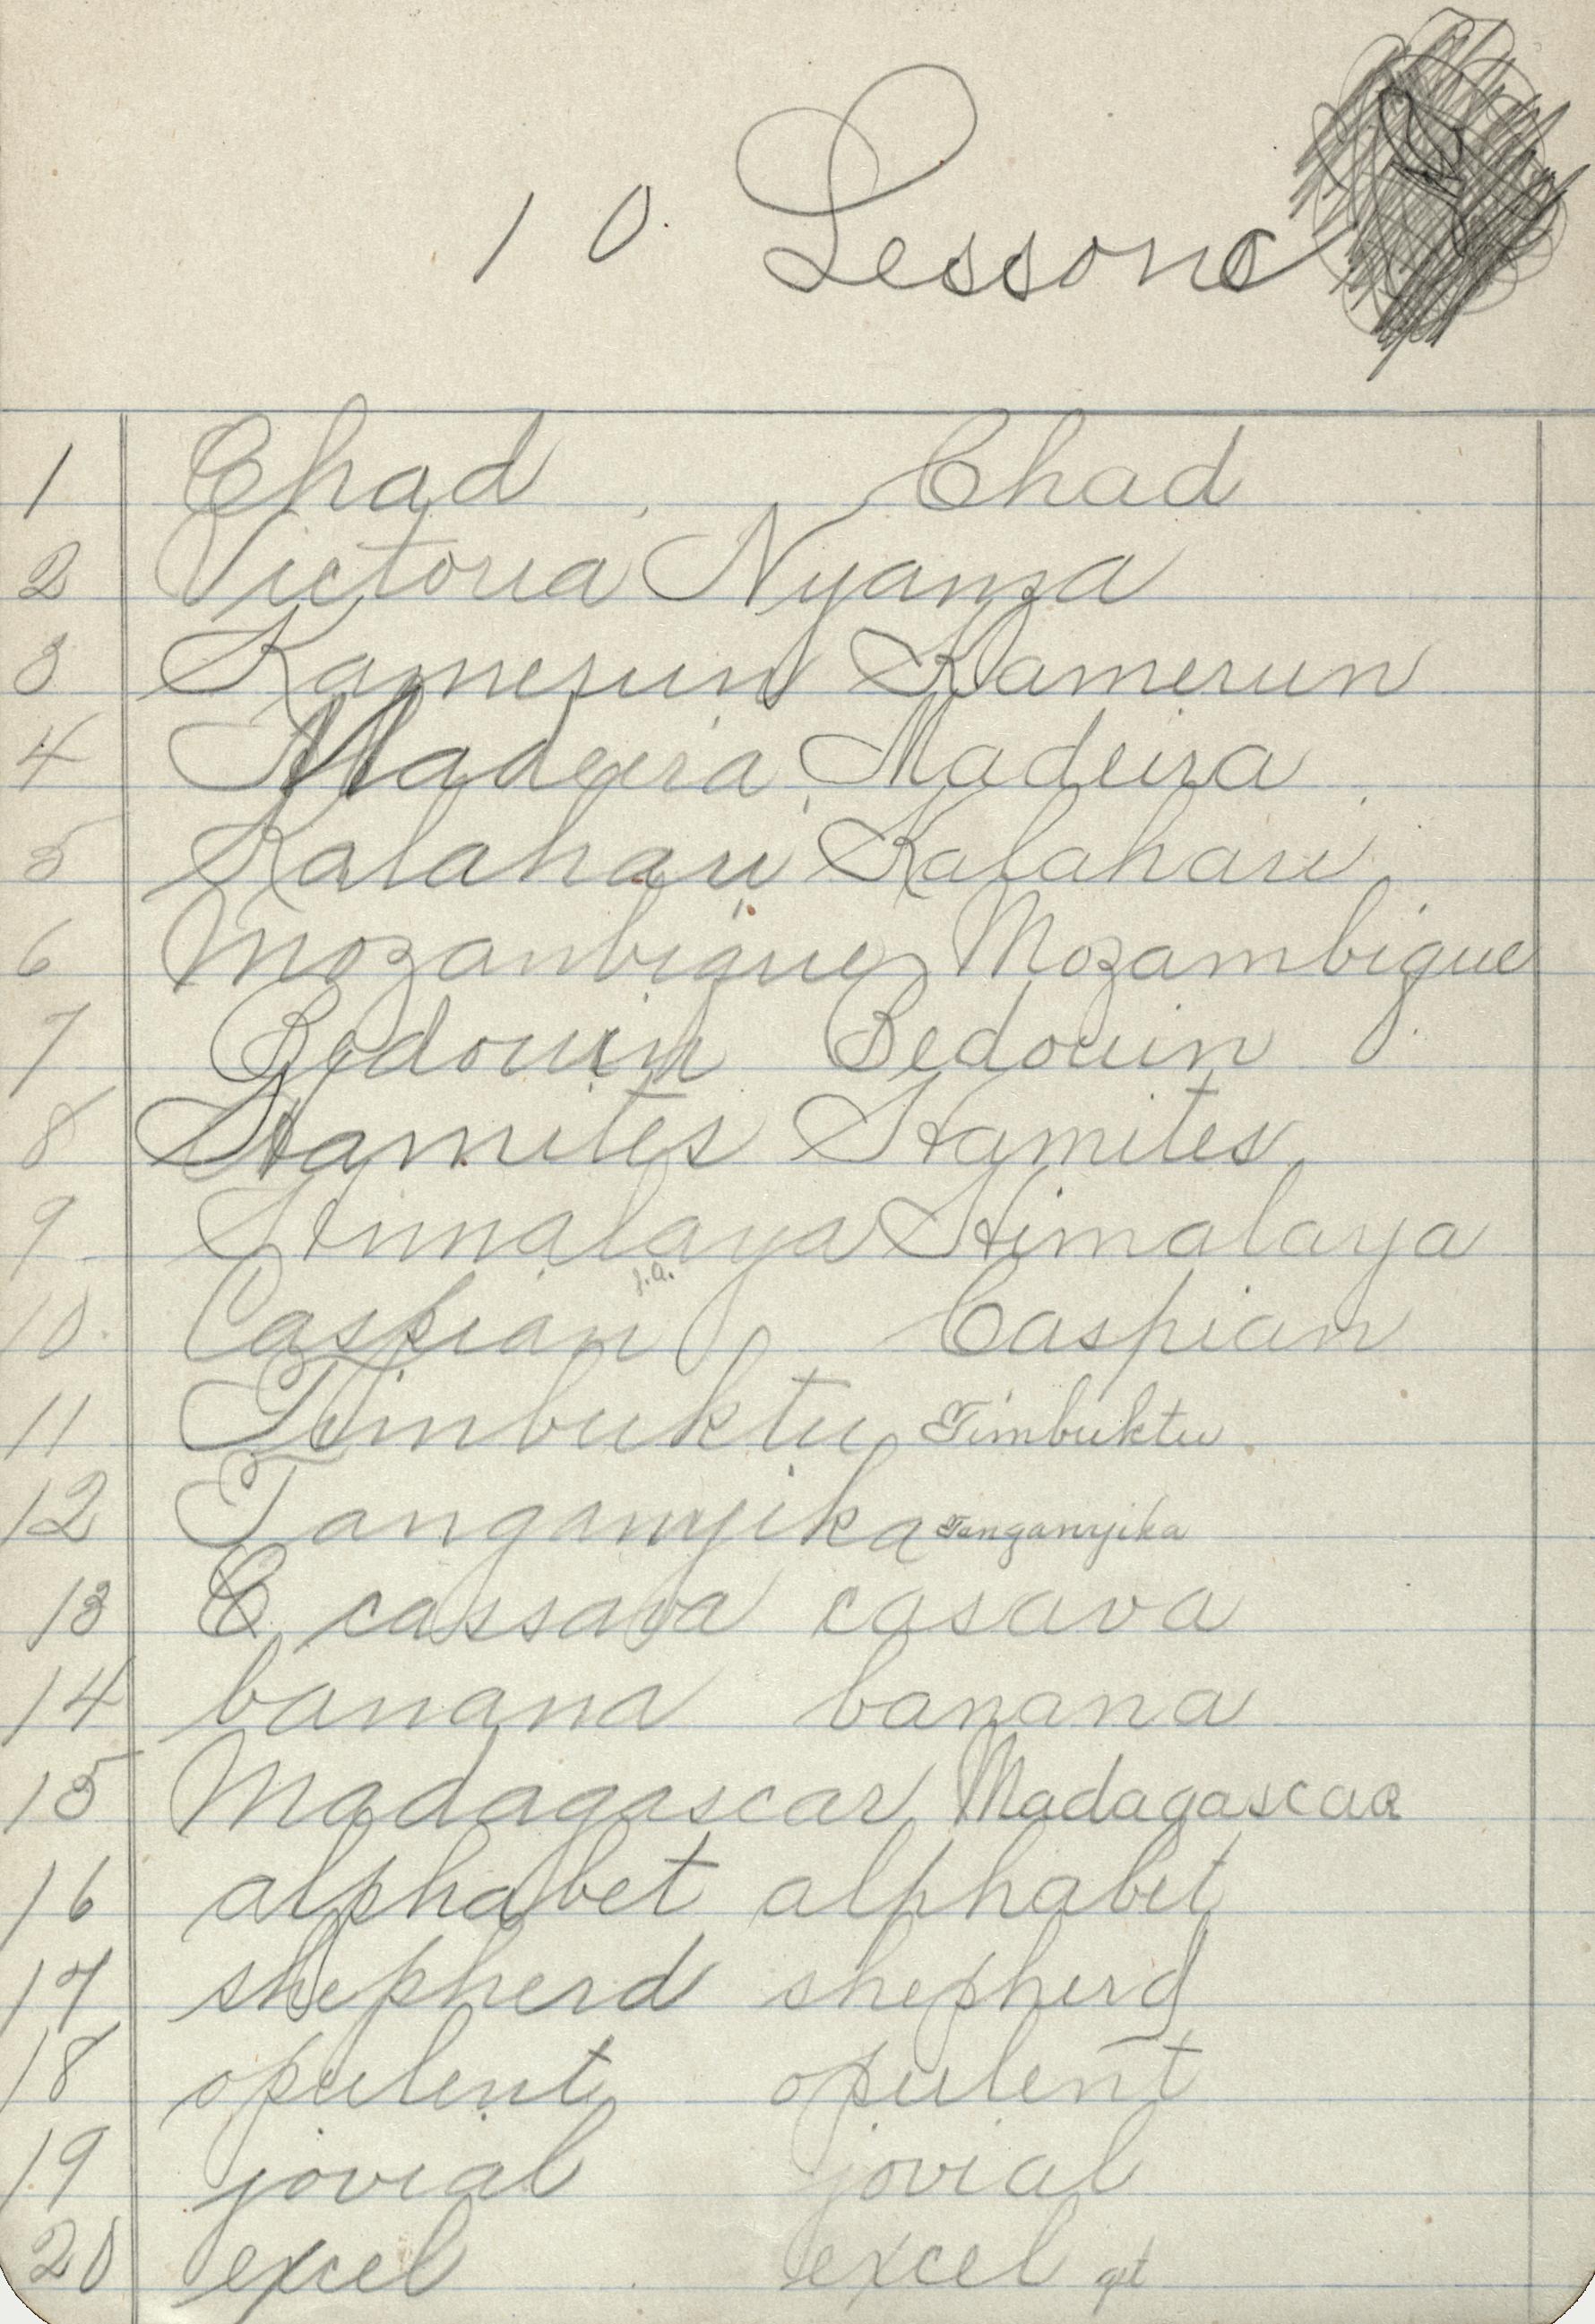 10. Lesson
1 Chad Chad
2 Victoria Nyanza
3 Kamerun Kamerun
4 Madeira Madeira
5 Kalahari Kalahari
6 Mozanbique Mozambique
7 Bedouin Bedouin
8 Hamites Hamites
9 Himalaya Himalaya
10. Caspian Caspian
11 Timbuktu Timbuktu
12 Tanganyika Tanganyika
13 C cassava casava
14 banana banana
15 Madagascar Madagascar
16 alphabet alphabet
17 shepherd shepherd
18 opulent opulent
19 jovial jovial
20 excel excel